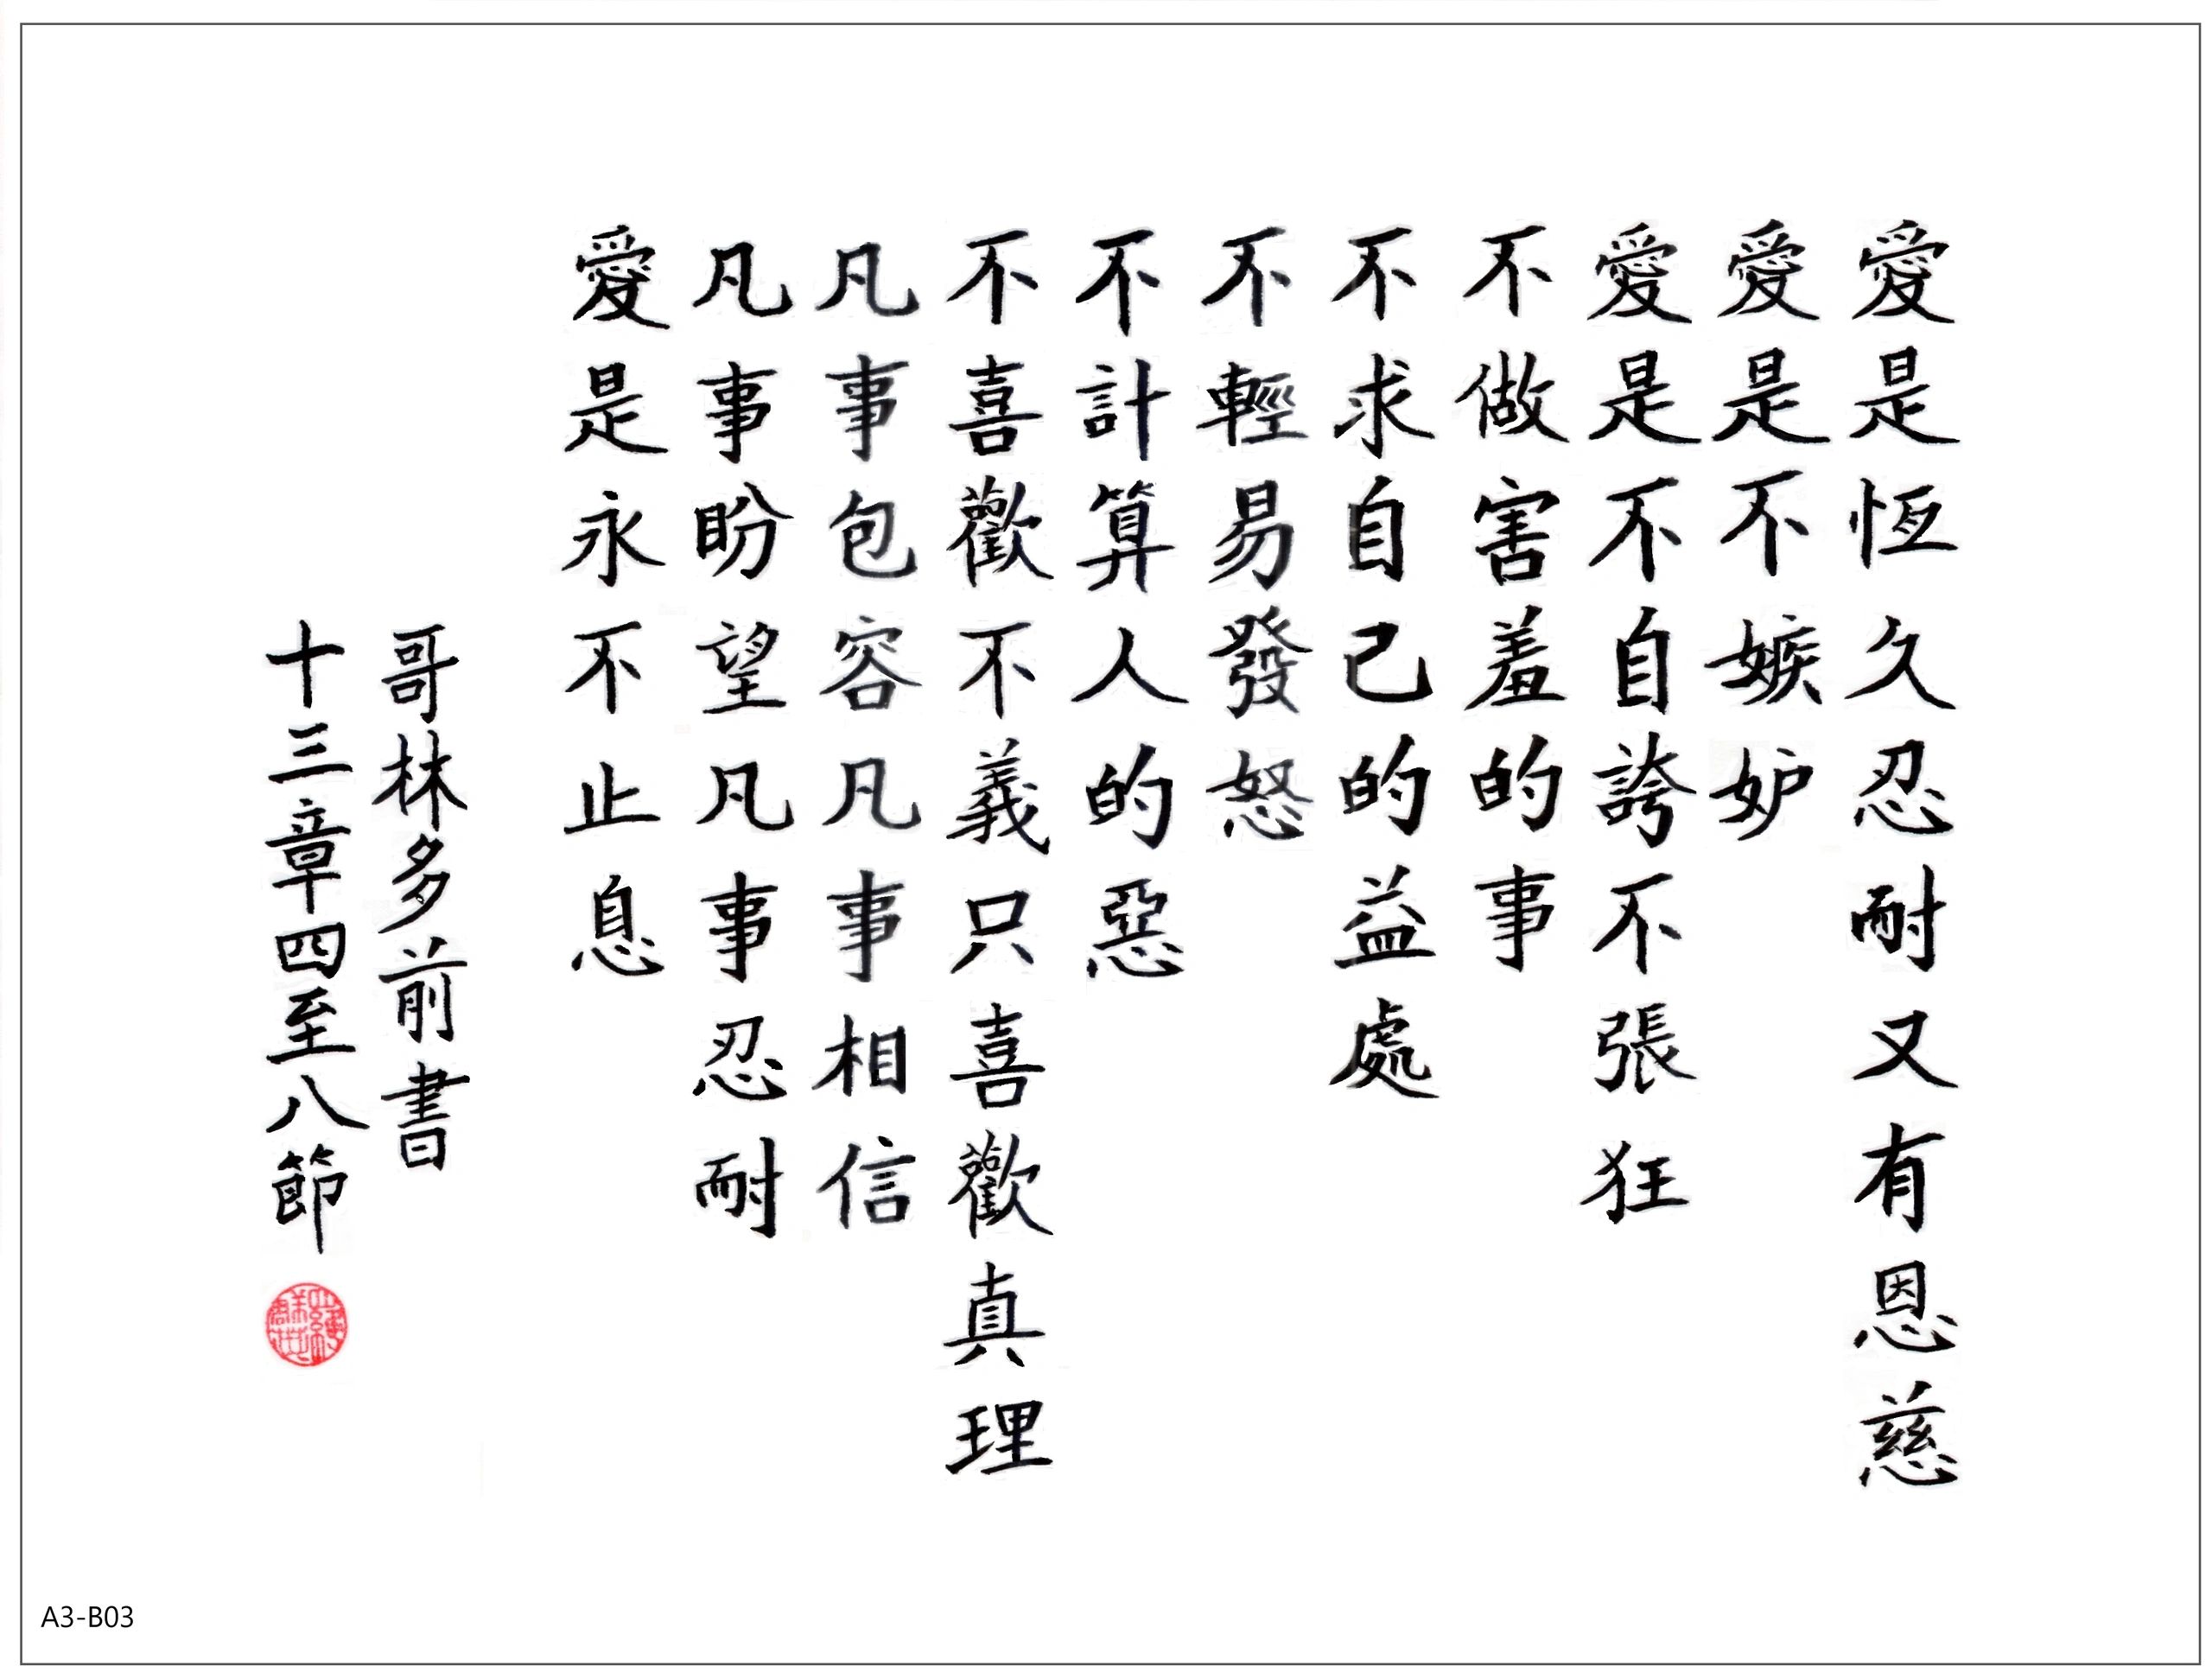 愛是恆久忍耐又有恩慈
愛是不嫉妒
愛是不自誇不張狂
不做害羞的事
不求自己的益處
不輕易發怒
不計算人的惡
不喜歡不義只喜歡真理
凡事包容凡事相信
凡事盼望凡事忍耐
愛是永不止息
哥林多前書
十三章四至八節
A3-B03